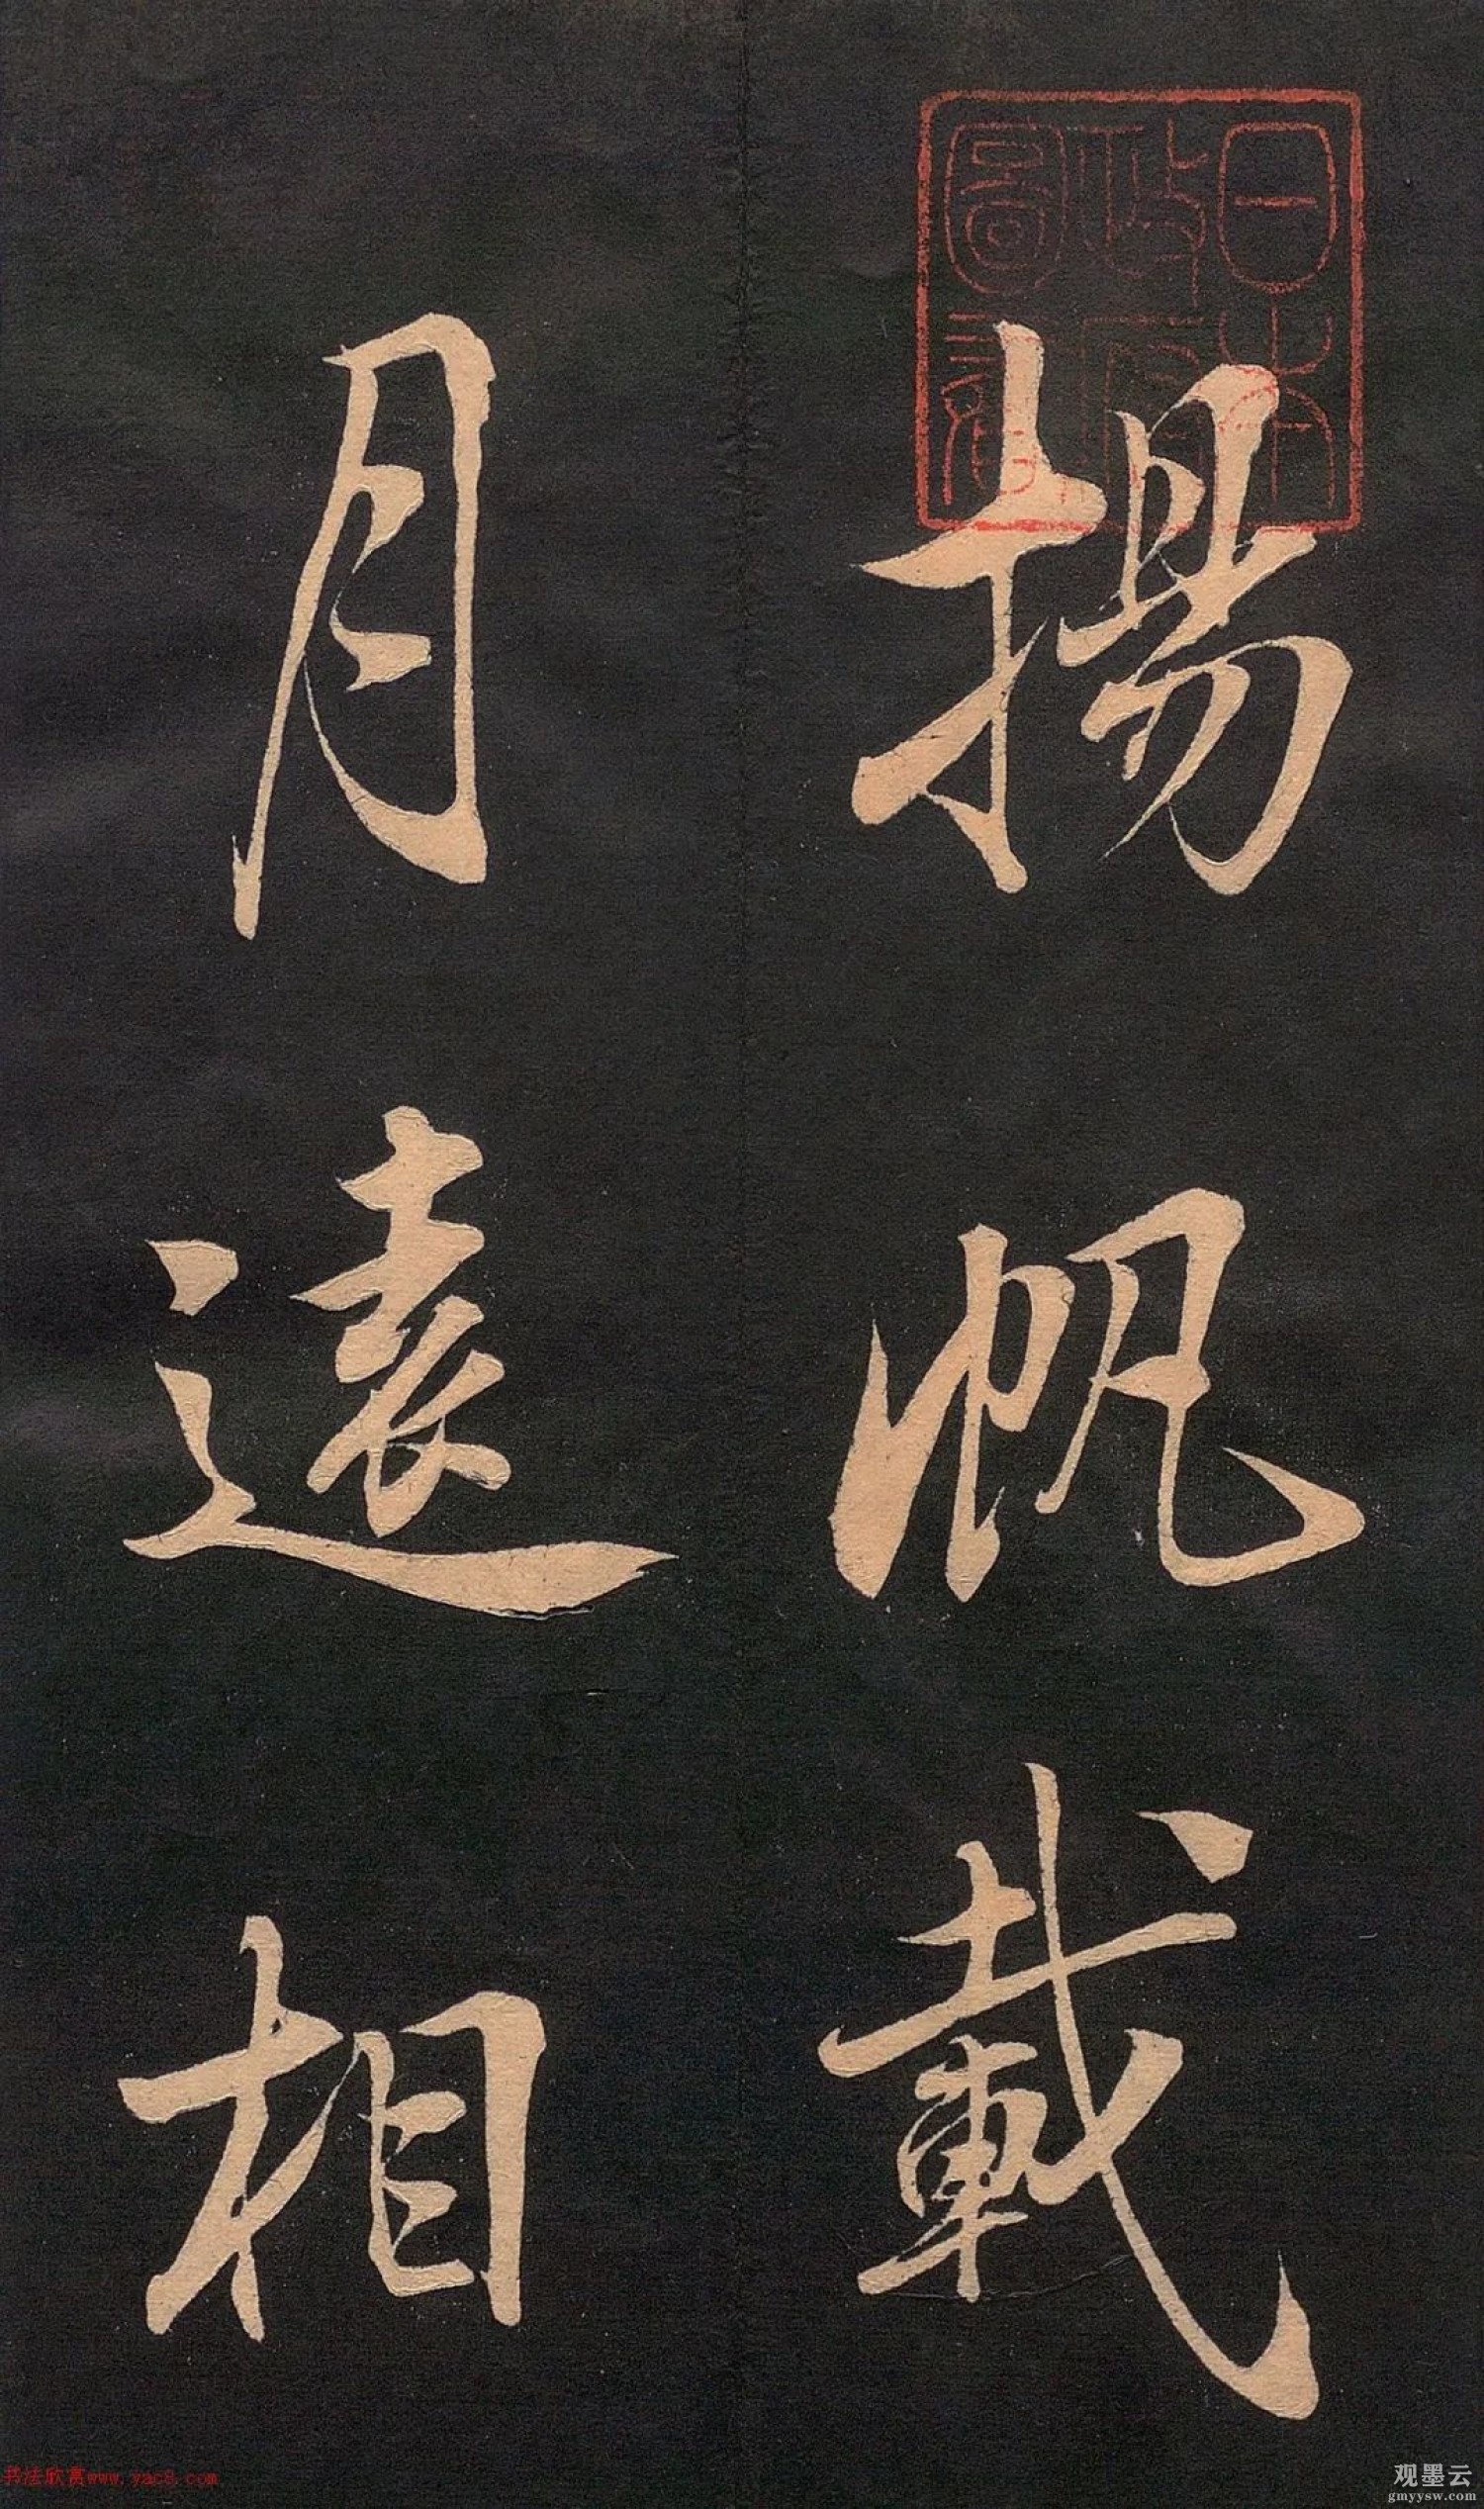 揚帆載
月遠相
日本政府圖書
书法欣赏www.yac8.com
观墨云
gmyysw.com